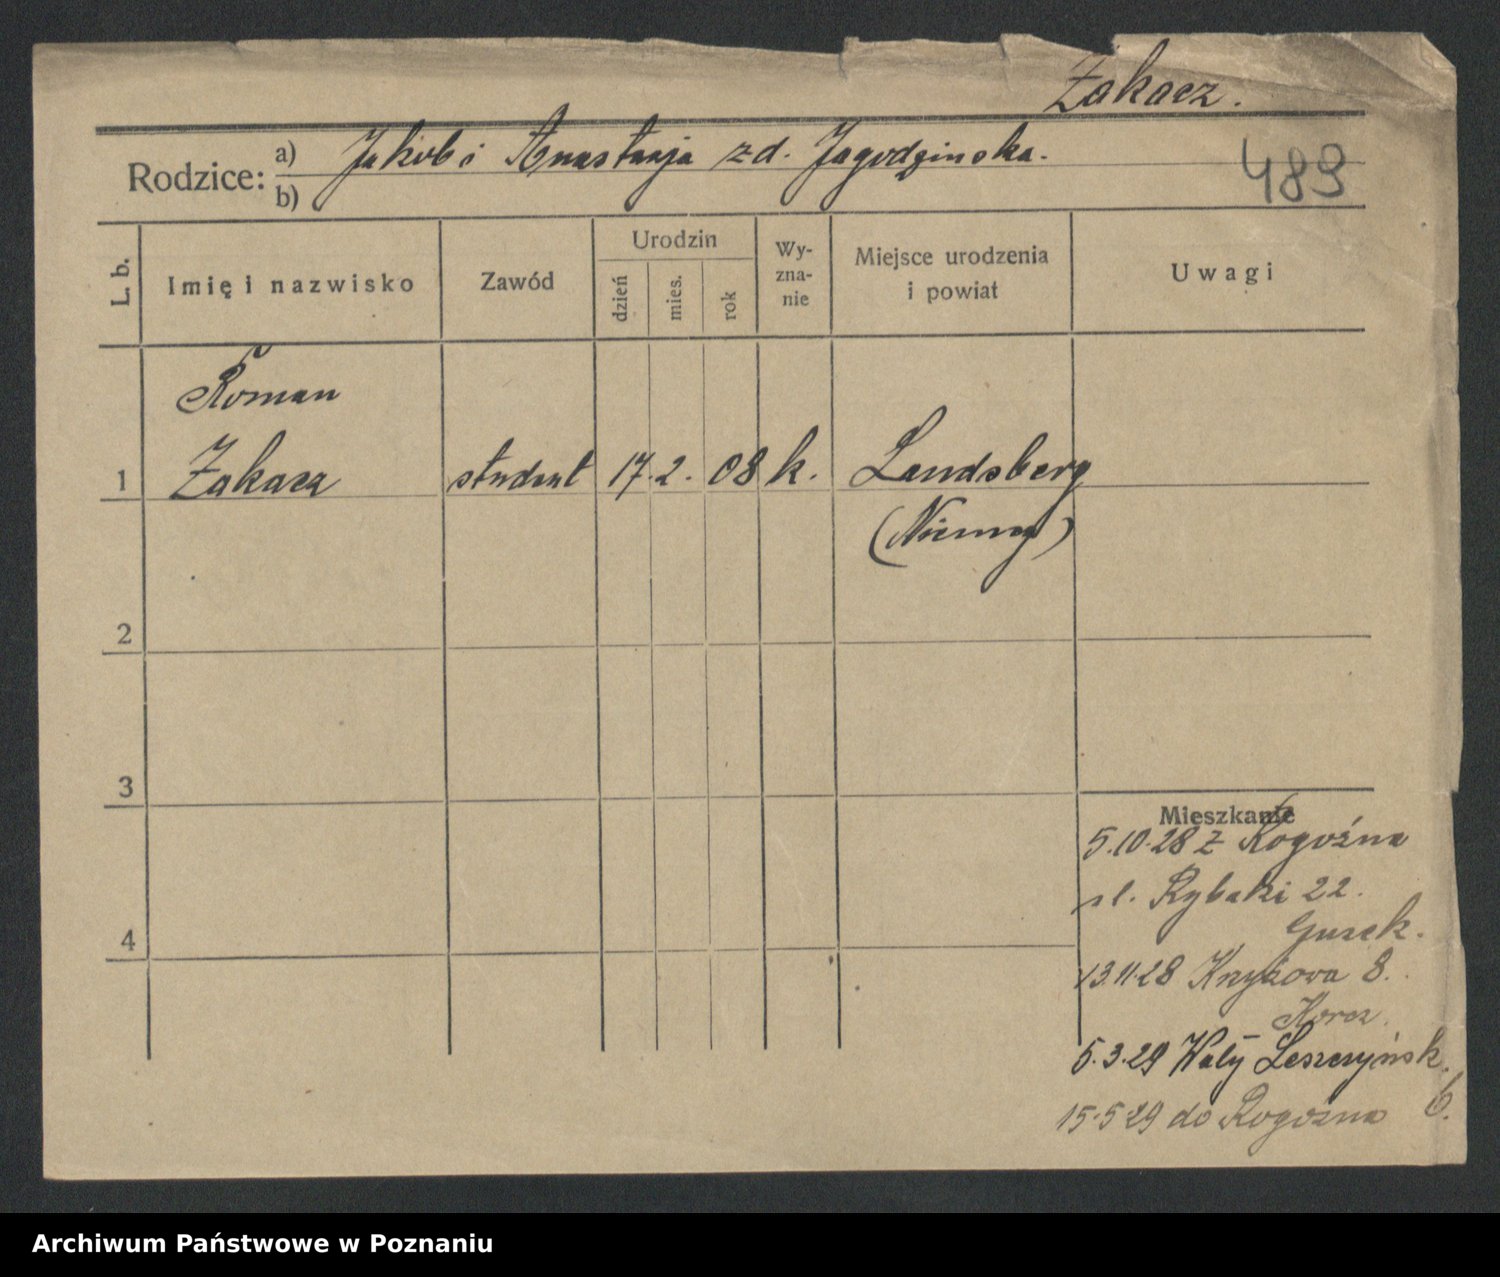 Żakacz.
Rodzice: a) Jakób i Anastazja z d. Jagodzinska.
b)
489
L. b.
Imię i nazwisko
Zawód
Urodzin
dzień
mies.
rok
Wy-
zna-
nie
Miejsce urodzenia
i powiat
Uwagi
Roman
1 Żakacz student 17. 2. 08 k. Landsberg
(Niemcy)
2
3
4
Mieszkanie
5.10.28 z Rogoźna
ul. Rybaki 22.
13.11.28 Krzyżowa 8.
Korcz.
5.3.29 Wały Leszczyńsk.
6.
15.5.29 do Rogozna
Archiwum Państwowe w Poznaniu